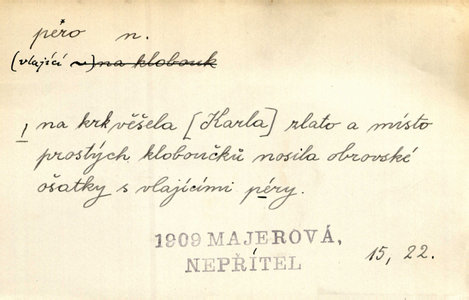 péro n.
(vlající ~) na klobouk
na krk věšela [Karla] zlato a místo
prostých kloboučků nosila obrovské
ošatky s vlajícími péry.
1909 MAJEROVÁ,
NEPŘÍTEL
15, 22.